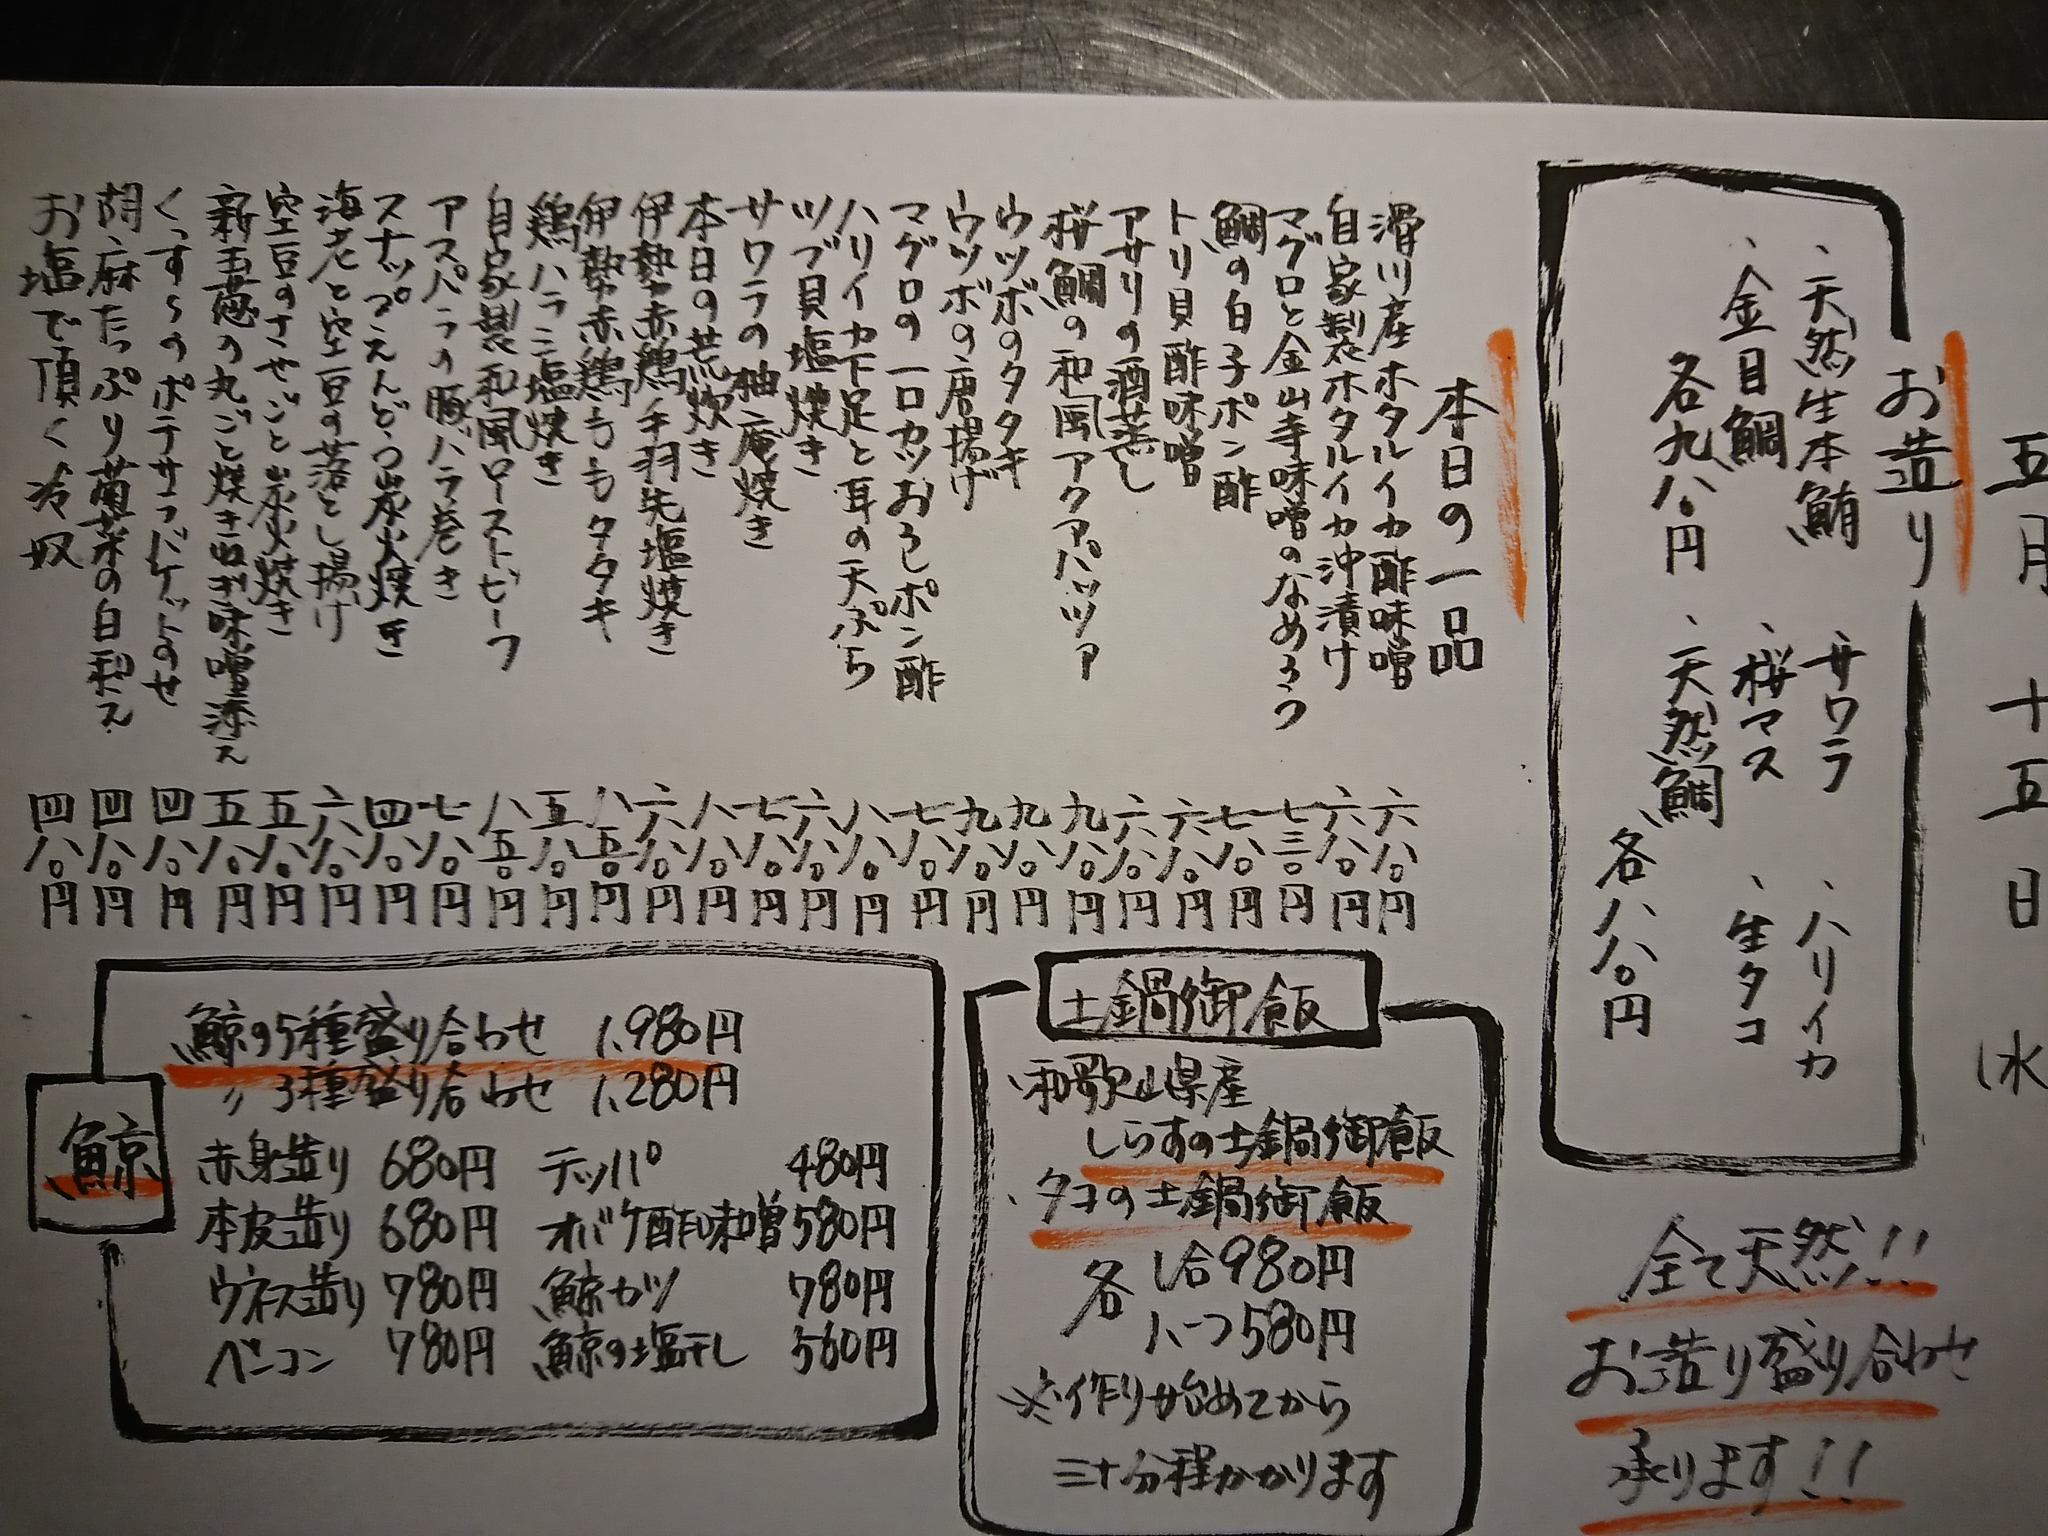 五月十五日 水
お造り
、天然生本鮪 、サワラ 、ハリイカ
、金目鯛 、桜マス 、生タコ
各九八〇円 、天然鯛 各八八〇円
全て天然!!
お造り盛り合わせ
承ります!!
本日の一品
滑川産ホタルイカ酢味噌 六八〇円
自家製ホタルイカ沖漬け 六八〇円
マグロと金山寺味噌のなめろう 七三〇円
鯛の白子ポン酢 七八〇円
トリ貝酢味噌 六八〇円
アサリの酒蒸し 六八〇円
桜鯛の和風アクアパッツァ 九八〇円
ウツボのタタキ 九八〇円
ウツボの唐揚げ 九八〇円
マグロの一口カツおろしポン酢 七八〇円
ハリイカ下足と耳の天ぷら 八八〇円
ツブ貝塩焼き 六八〇円
サワラの柚庵焼き 七八〇円
本日の荒炊き 八八〇円
伊勢赤鶏手羽先塩焼き 六八〇円
伊勢赤鶏ももタタキ 八五〇円
鶏ハラミ塩焼き 五八〇円
自家製和風ローストビーフ 八五〇円
アスパラの豚バラ巻き 七八〇円
スナップえんどう炭火焼き 四八〇円
海老と空豆の落とし揚げ 六八〇円
空豆のさやごと炭火焼き 五八〇円
新玉葱の丸ごと焼き 味噌添え 五八〇円
くっすんのポテサラバケットのせ 四八〇円
胡麻たっぷり菊菜の白和え 四八〇円
お塩で頂く冷奴 四八〇円
土鍋御飯
、和歌山県産
しらすの土鍋御飯
、タコの土鍋御飯
各 1合980円
ハーフ580円
※作り始めてから
三十分程かかります
鯨
鯨の5種盛り合わせ 1,980円
〃 3種盛り合わせ 1,280円
赤身造り 680円 テッパ 480円
本皮造り 680円 オバケ酢味噌 580円
ウネス造り 780円 鯨カツ 780円
ベーコン 780円 鯨の塩干し 560円